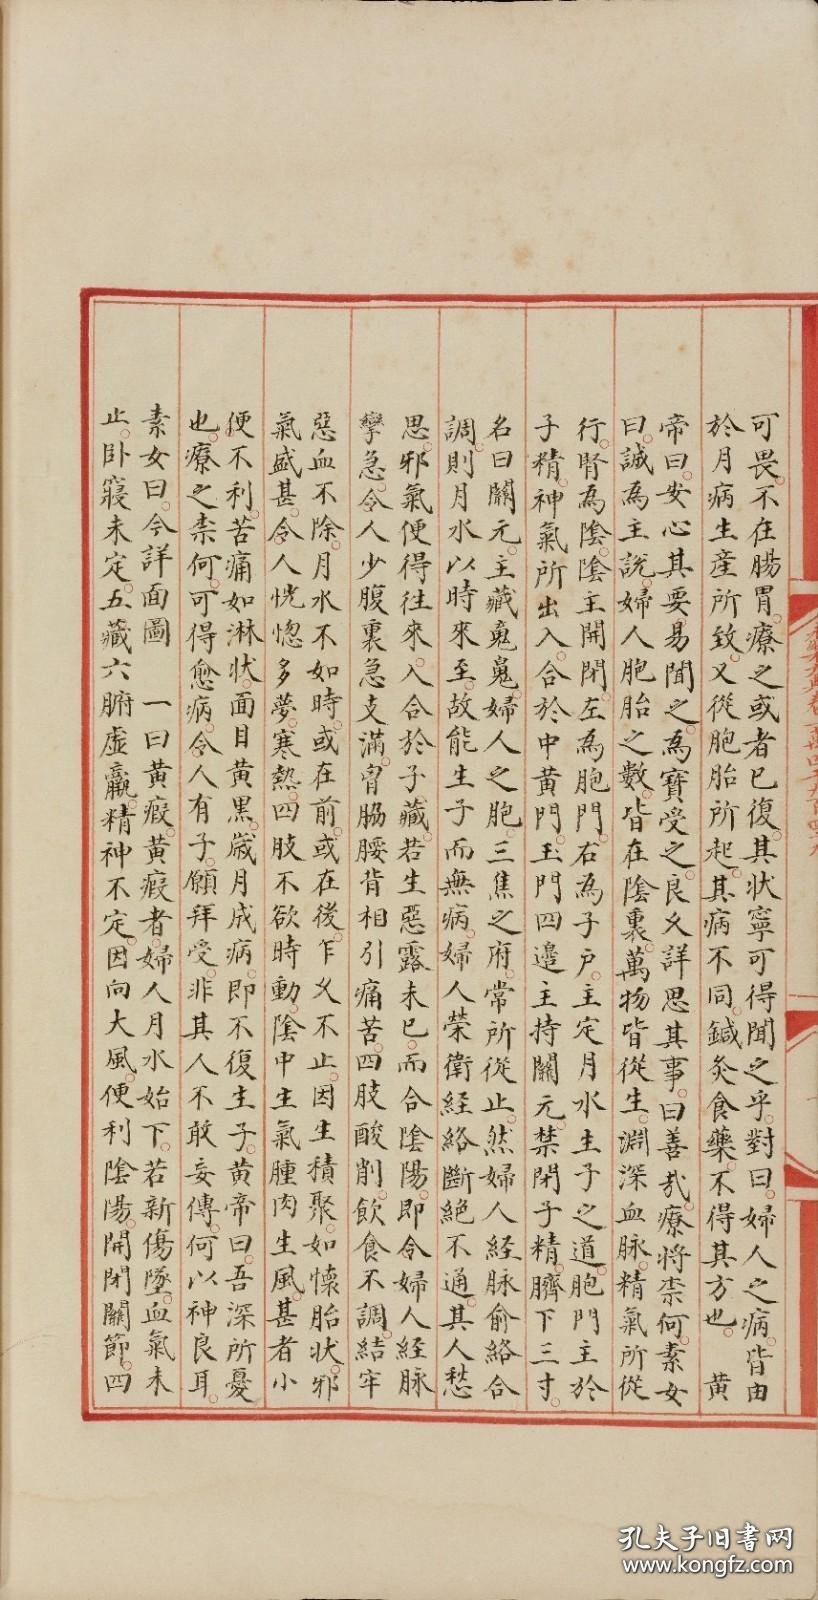 可畏不在腸胃療之或者已復其狀寧可得聞之乎對曰婦人之病皆由
於月病生產所致又從胞胎所起其病不同鍼灸食藥不得其方也　黃
帝曰安心其要易聞之為寶受之良久詳思其事曰善哉療將柰何素女
曰誠為主說婦人胞胎之數皆在陰裏萬物皆從生淵深血脉精氣所從
行腎為陰陰主開閉左為胞門右為子戶主定月水生子之道胞門主於
子精神氣所出入合於中黃門玉門四邊主持關元禁閉子精臍下三寸
名曰關元主藏䰟䰟婦人之胞三焦之府常所從止然婦人經脉俞絡合
調則月水以時來至故能生子而無病婦人榮衛經絡斷絕不通其人愁
思邪氣便得往來入合於子藏若生惡露未已而合陰陽即令婦人經脉
攣急令人少腹裏急支滿胷脇腰背相引痛苦四肢酸削飲食不調結牢
惡血不除月水不如時或在前或在後乍久不止因生積聚如懷胎狀邪
氣盛甚令人恍惚多夢寒熱四肢不欲時動陰中生氣腫肉生風甚者小
便不利苦痛如淋狀面目黃黑歲月成病即不復生子黃帝曰吾深所憂
也療之柰何可得愈病令人有子願拜受非其人不敢妄傳何以神良耳
素女曰今詳面圖　一曰黃瘕黃瘕者婦人月水始下若新傷墜血氣未
止卧寢未定五藏六腑虛羸精神不定因向大風便利陰陽開閉關節四
孔夫子旧书网
www.kongfz.com